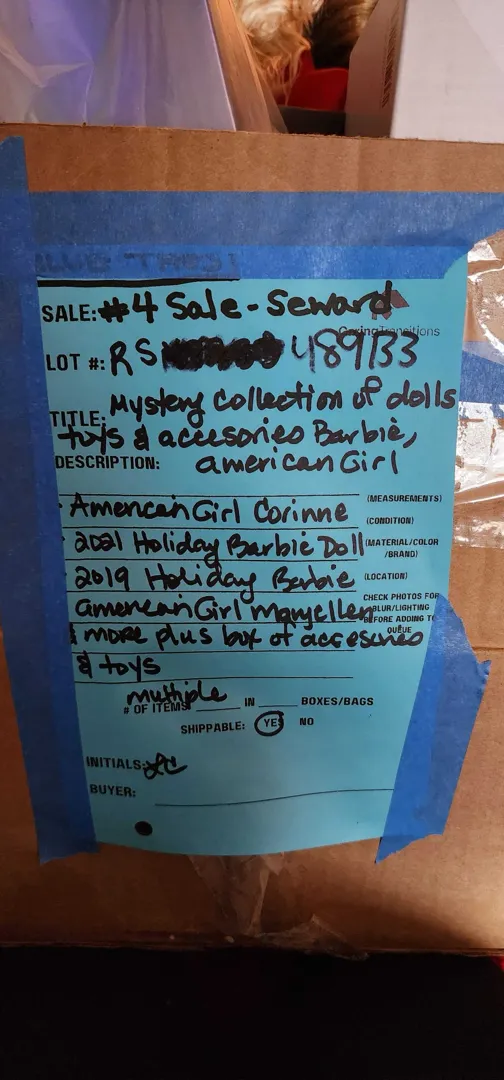 BLUE TAPE!
SALE: #4 Sale - Seward
CaringTransitions
LOT #: RS 489133
TITLE: Mystery Collection of dolls
toys & accesories Barbie,
DESCRIPTION: american Girl
(MEASUREMENTS)
American Girl Corinne
(CONDITION)
2021 Holiday Barbie Doll (MATERIAL/COLOR
/BRAND)
2019 Holiday Barbie (LOCATION)
CHECK PHOTOS FOR
American Girl Maryellen BLUR/LIGHTING
BEFORE ADDING TO
QUEUE
& more plus box of accesories
& toys
multiple
# OF ITEMS IN BOXES/BAGS
SHIPPABLE: YES NO
INITIALS: LC
BUYER: